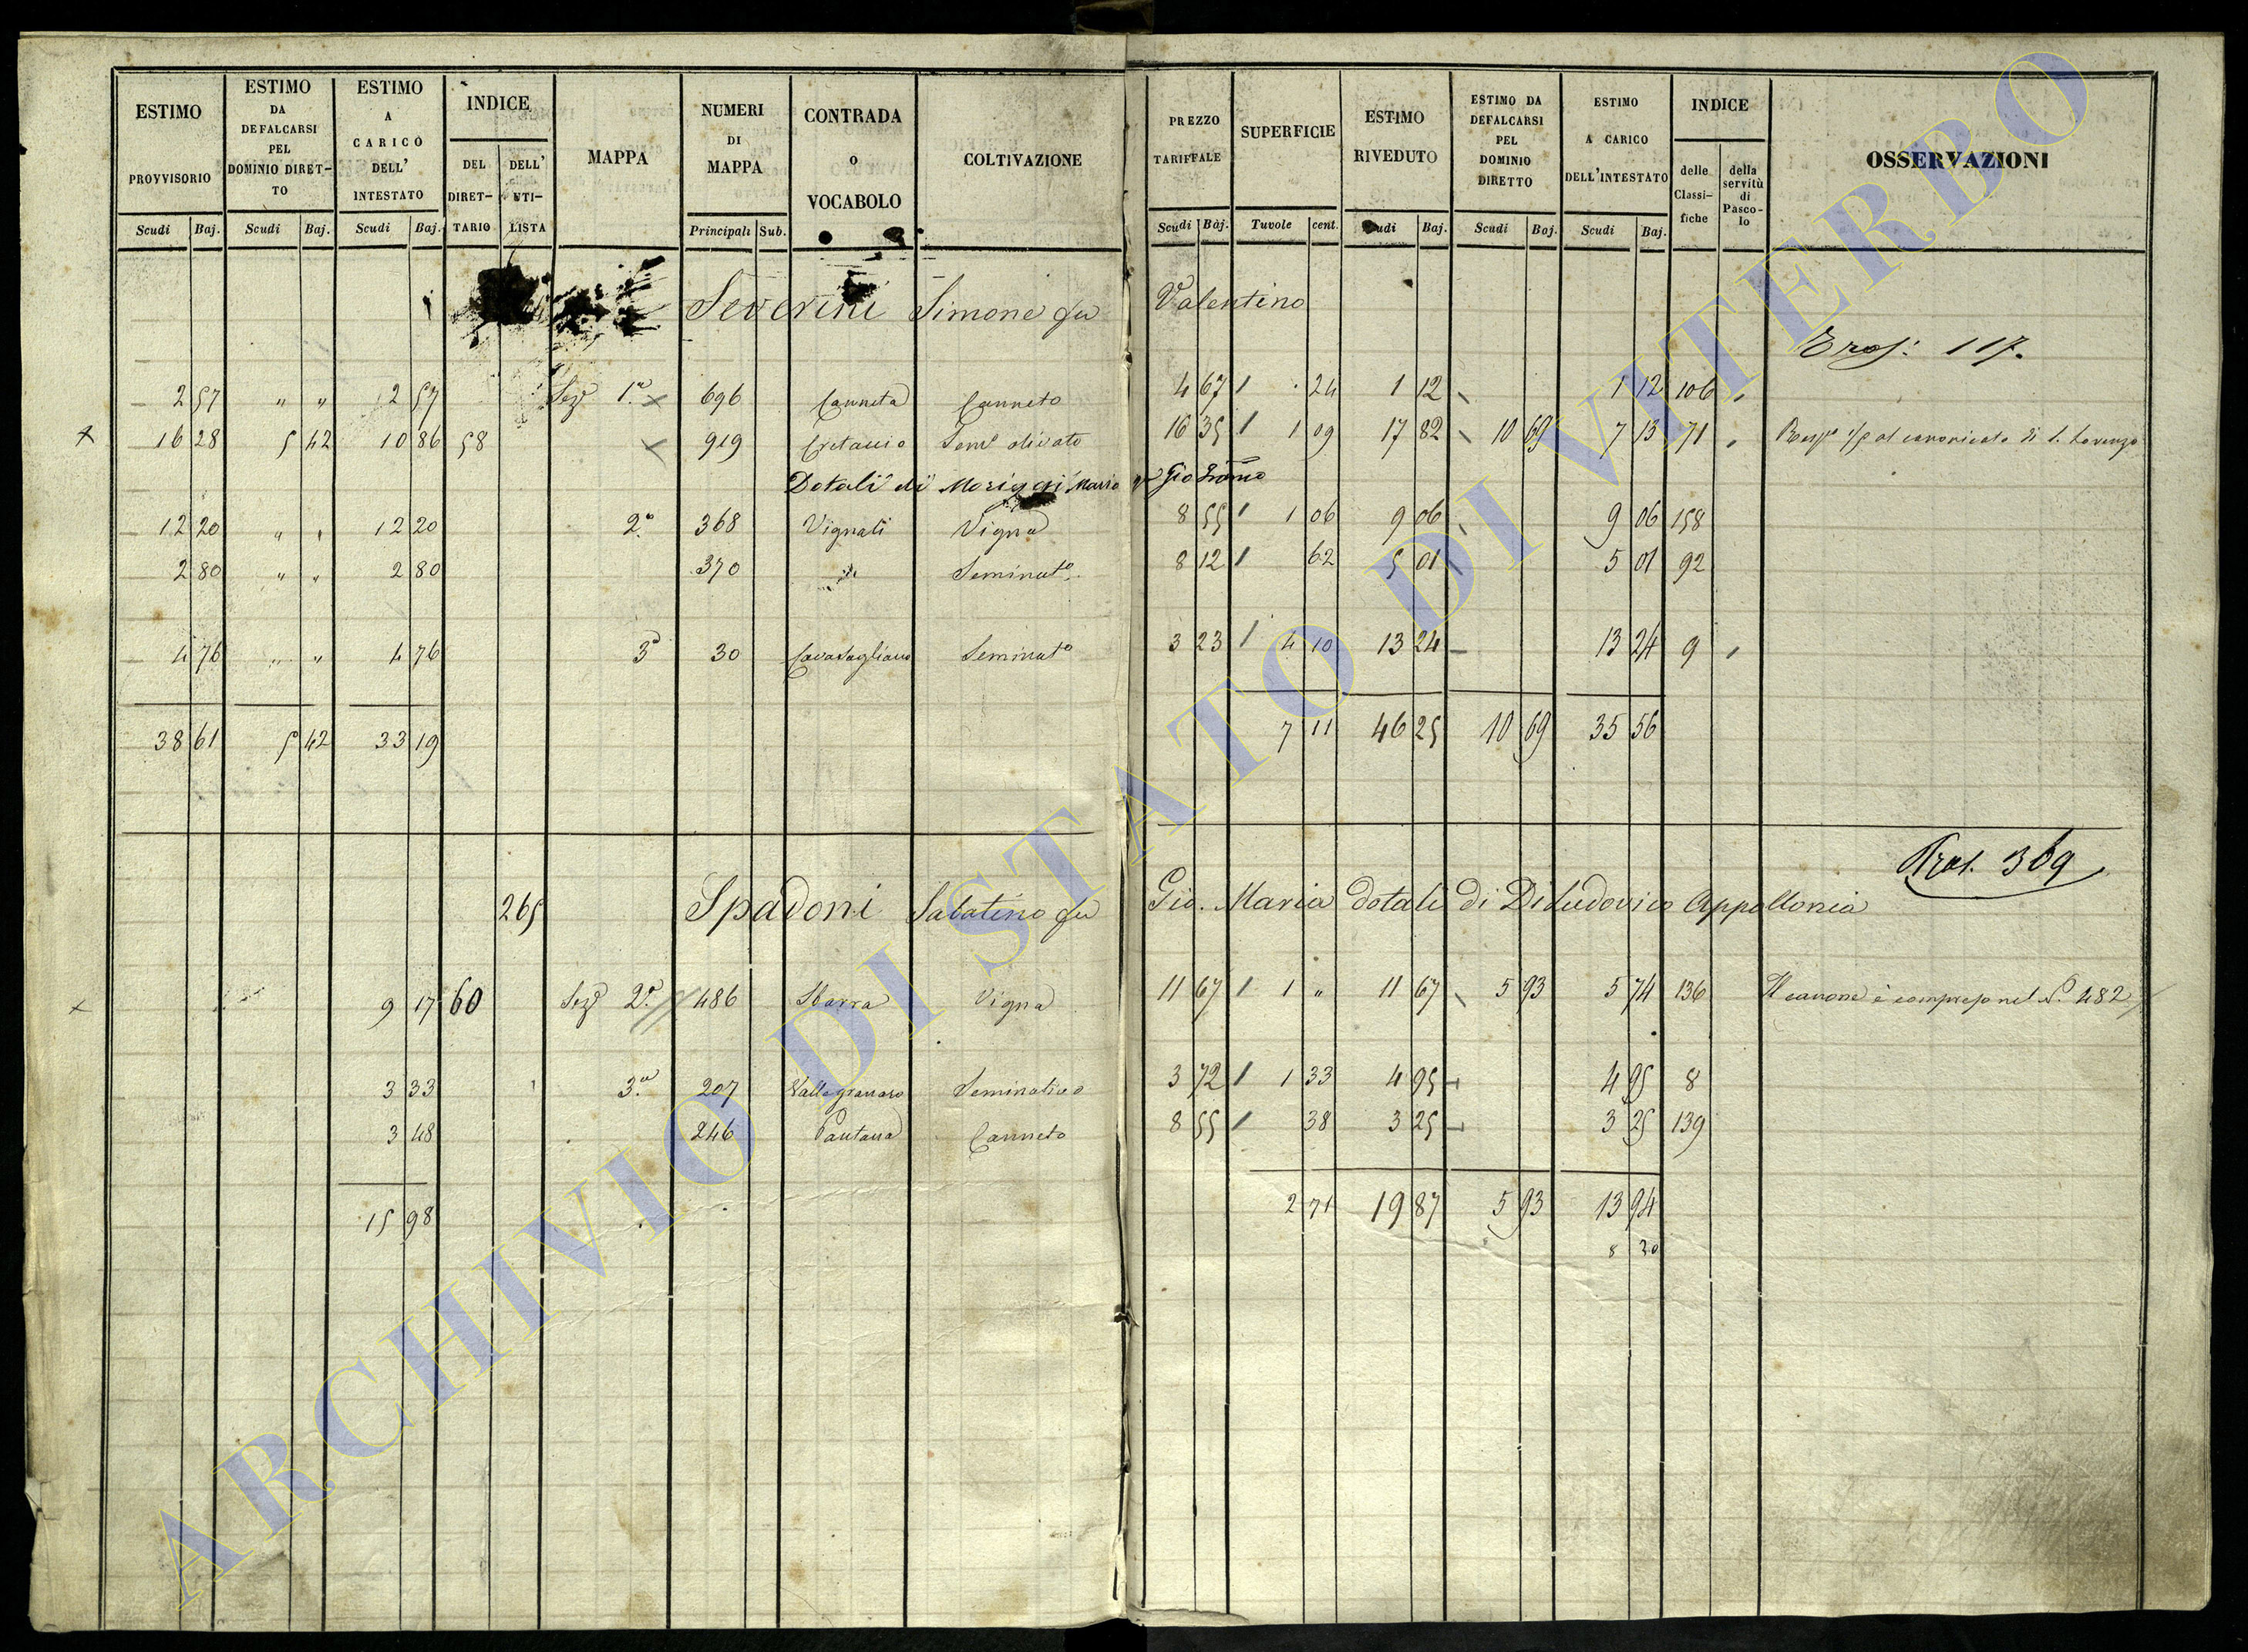 ESTIMO PROVVISORIO | ESTIMO DA DEFALCARSI PEL DOMINIO DIRETTO | ESTIMO A CARICO DELL' INTESTATO | INDICE | MAPPA | NUMERI DI MAPPA | CONTRADA O VOCABOLO | COLTIVAZIONE | PREZZO TARIFFALE | SUPERFICIE | ESTIMO RIVEDUTO | ESTIMO DA DEFALCARSI PEL DOMINIO DIRETTO | ESTIMO A CARICO DELL'INTESTATO | INDICE | OSSERVAZIONI
DEL DIRETTARIO | DELL' UTILISTA | delle Classifiche | della servitù di Pascolo
Scudi Baj. Scudi Baj. Scudi Baj. Principali Sub. Scudi Baj. Tavole cent. Scudi Baj. Scudi Baj. Scudi Baj.
Severini Simone fu Valentino
117.
2 57 " " 2 57 Sezᵉ 1ª 696 Canneta Canneto 4 67 24 1 12 1 12 106
16 28 5 42 10 86 58 919 Cretaccio Semᵒ olivato 16 35 1 09 17 82 10 69 7 13 71 al canonicato di S. Lorenzo
Dotali di Maria Gio
12 20 " " 12 20 2ª 368 Vignali Vigna 8 55 1 06 9 06 9 06 158
2 80 " " 2 80 370 " Seminatᵒ 8 12 62 5 01 5 01 92
4 76 " " 4 76 3ª 30 Seminatᵒ 3 23 4 10 13 24 13 24 9
38 61 5 42 33 19 7 11 46 25 10 69 35 56
Prot. 369
265 Spadoni Sabatino fu Gio. Maria dotali di Di Ludovico Appollonia
9 17 60 Sezᵉ 2ª 486 Sbarra Vigna 11 67 1 " 11 67 5 93 5 74 136 Il canone è compreso nel N. 482
3 33 3ª 207 Vallegranaro Seminativo 3 72 1 33 4 95 4 95 8
3 48 246 Pantana Canneto 8 55 38 3 25 3 25 139
15 98 2 71 19 87 5 93 13 94
8 20
ARCHIVIO DI STATO DI VITERBO